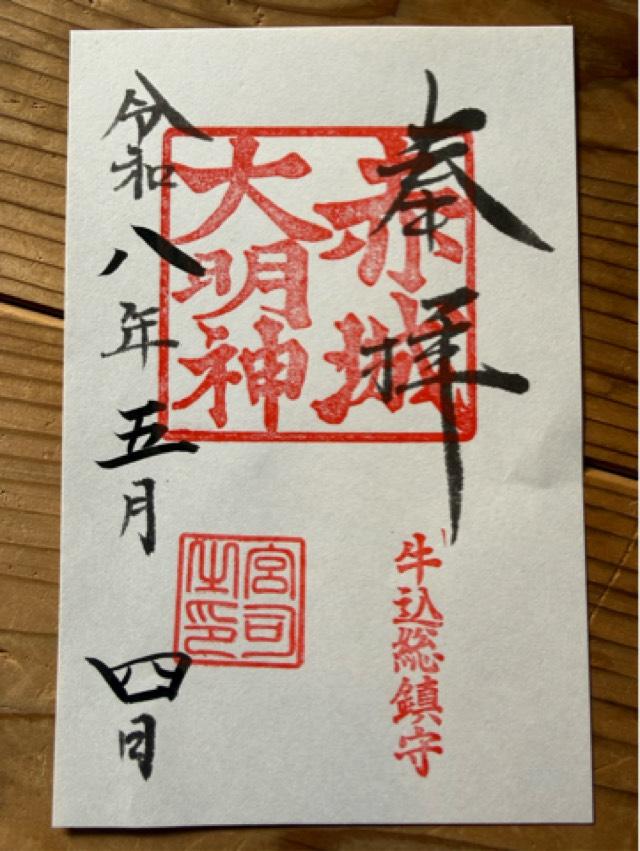 奉拝
赤城
大明神
牛込総鎮守
宮司之印
令和八年五月四日